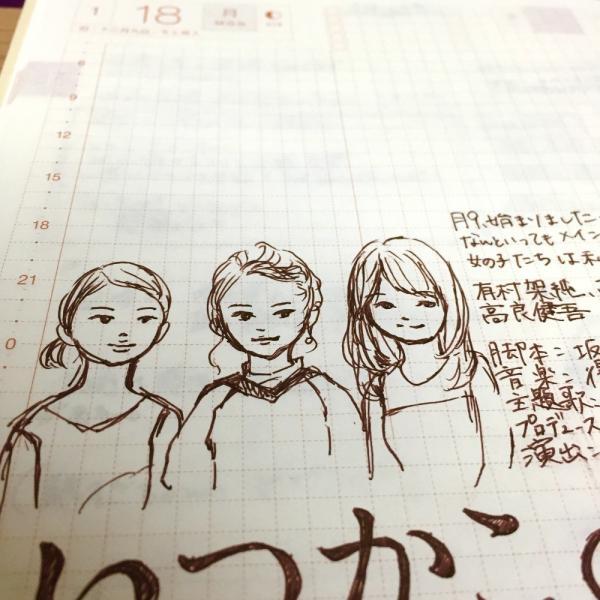 1 18 月
6
9
12
15
18
21
0
月9、始まりました
なんといってもメイン
女の子たちは
有村架純、
高良健吾
脚本: 坂
音楽:
主題歌:
プロデュース
演出:
いつかこの